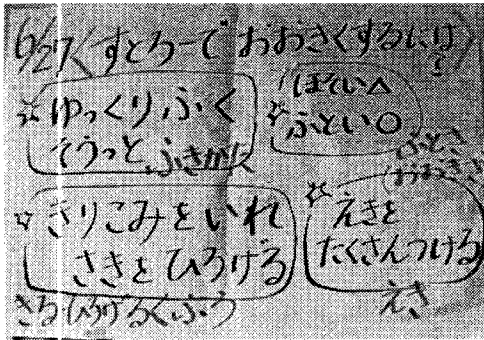 6/27 〈すとろーで おおきくするには?〉
☆ゆっくりふく
そうっと ふきかた
☆ほそい△
ふとい○
ふとさ
おおきさ
☆きりこみをいれ
さきをひろげる
きる ひろげる くふう
☆えきを
たくさんつける
えき